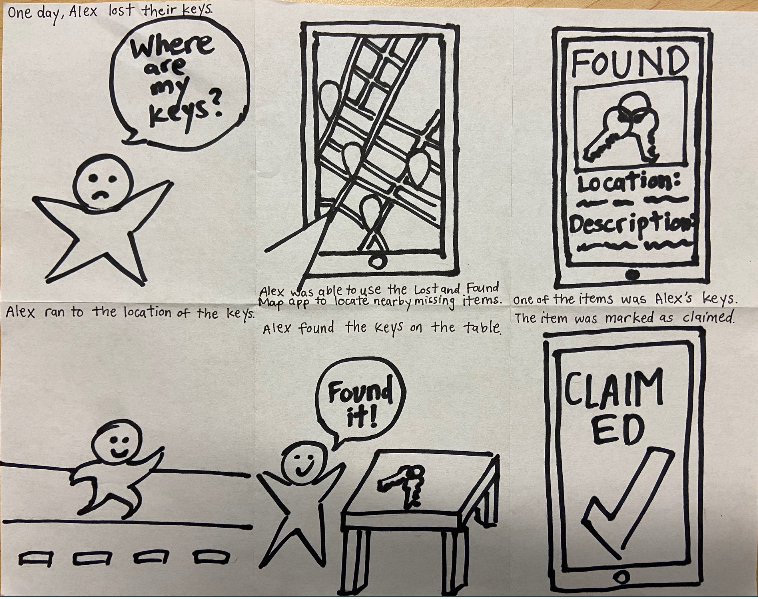 One day, Alex lost their keys.
Where
are
my
keys?
Alex was able to use the Lost and Found
Map app to locate nearby missing items.
FOUND
Location:
Description:
One of the items was Alex's keys.
Alex ran to the location of the keys.
Alex found the keys on the table.
Found
it!
The item was marked as claimed.
CLAIM
ED